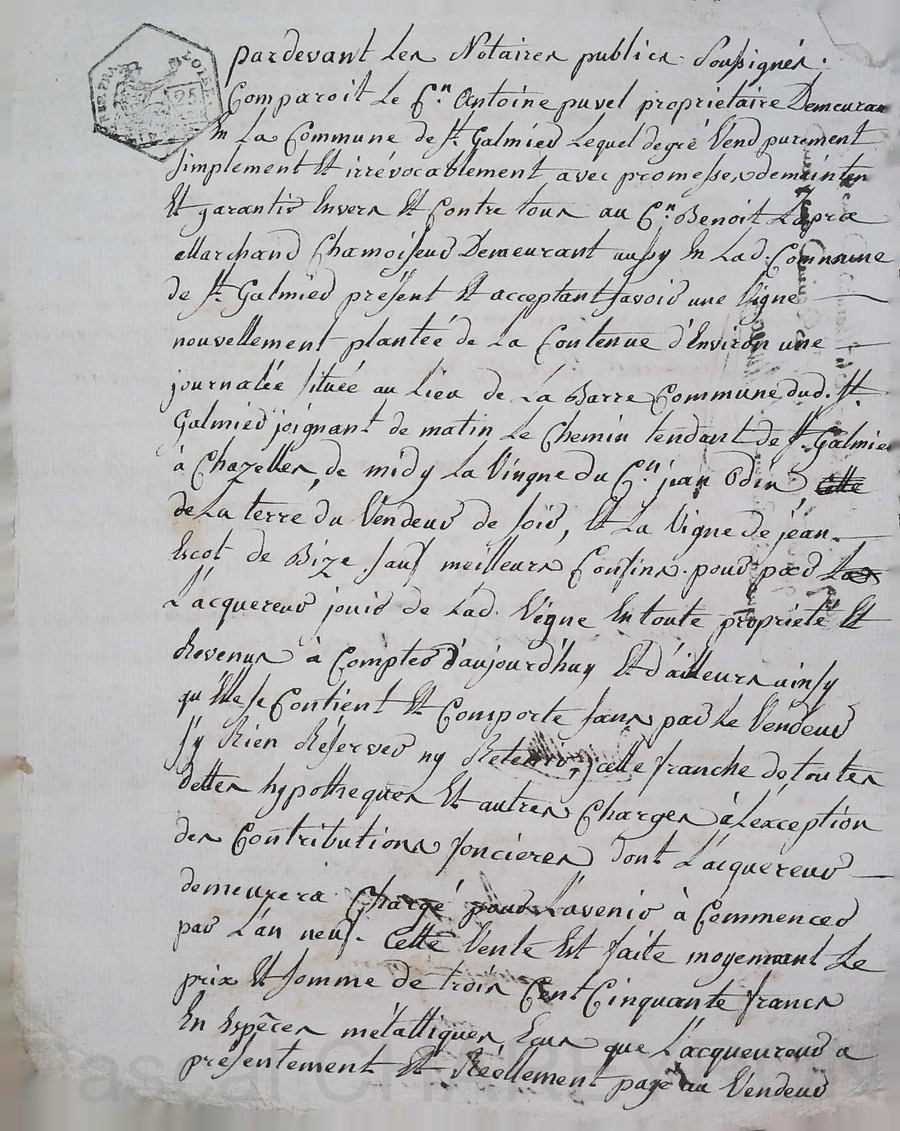 pardevant Les Notaires publics Soussignés.
Comparoit Le C.n Antoine puvel propriétaire Demeuran
En La Commune de St. Galmier Lequel degré Vend purement
Simplement Et irrévocablement avec promesses demainten
Et garantir Envers Et Contre tous au C.n Benoit Lapra
Marchand Chamoiseur Demeurant aussy En Lad. Commune
de St. Galmier présent Et acceptant Savoir une Vigne
nouvellement plantée de La Contenue d'Environ une
journalée Située au Lieu de La Barre Commune dud. St.
Galmier joignant de matin Le Chemin tendant de St. Galmier
à Chazelles, de midy La Vingne du C.n jean Odin
de La terre du Vendeur de soir, Et La Vigne de jean
Escot de Bize Sauf meilleurs Confins. pour par
L'acquereur jouir de Lad. Vigne En toute propriété Et
Revenus à Compter d'aujourd'huy Et d'ailleurs ainsy
qu'Elle se Contient Et Comporte Sans par Le Vendeur
S'y Rien Réserver ny Retenir, cette franche de toutes
dettes hypotheques Et autres Charges à L'exception
des Contributions foncieres Dont L'acquereur
demeurera Chargé pour L'avenir à Commencer
par L'an neuf. Cette Vente Est faite moyennant Le
prix Et Somme de trois Cent Cinquante francs
En Espêces métalliques, Eous que L'acquereur a
présentement Et Réellement payé au Vendeur
LOIRE
25